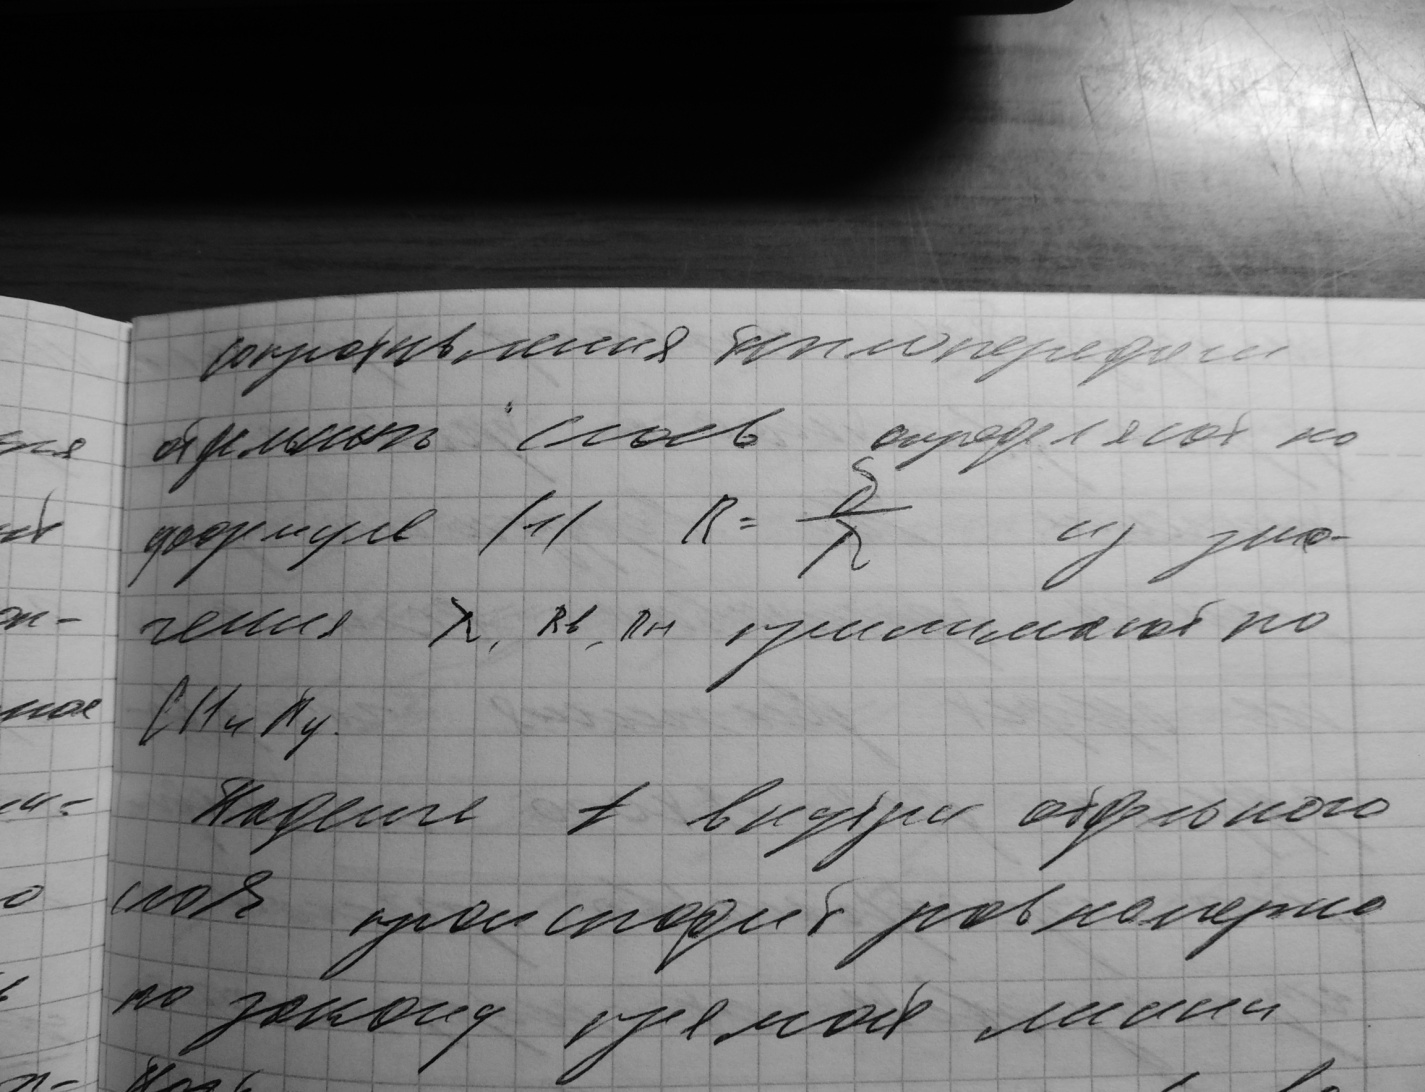 сопротивления теплопередачи
отдельных слоев определяют по
формуле (1) R = δ/λ из зна-
ся
чения λ, Rв, Rн принимают по
СНиПу.
ное
Падение t внутри отдельного
слоя происходит равномерно
по закону прямой линии